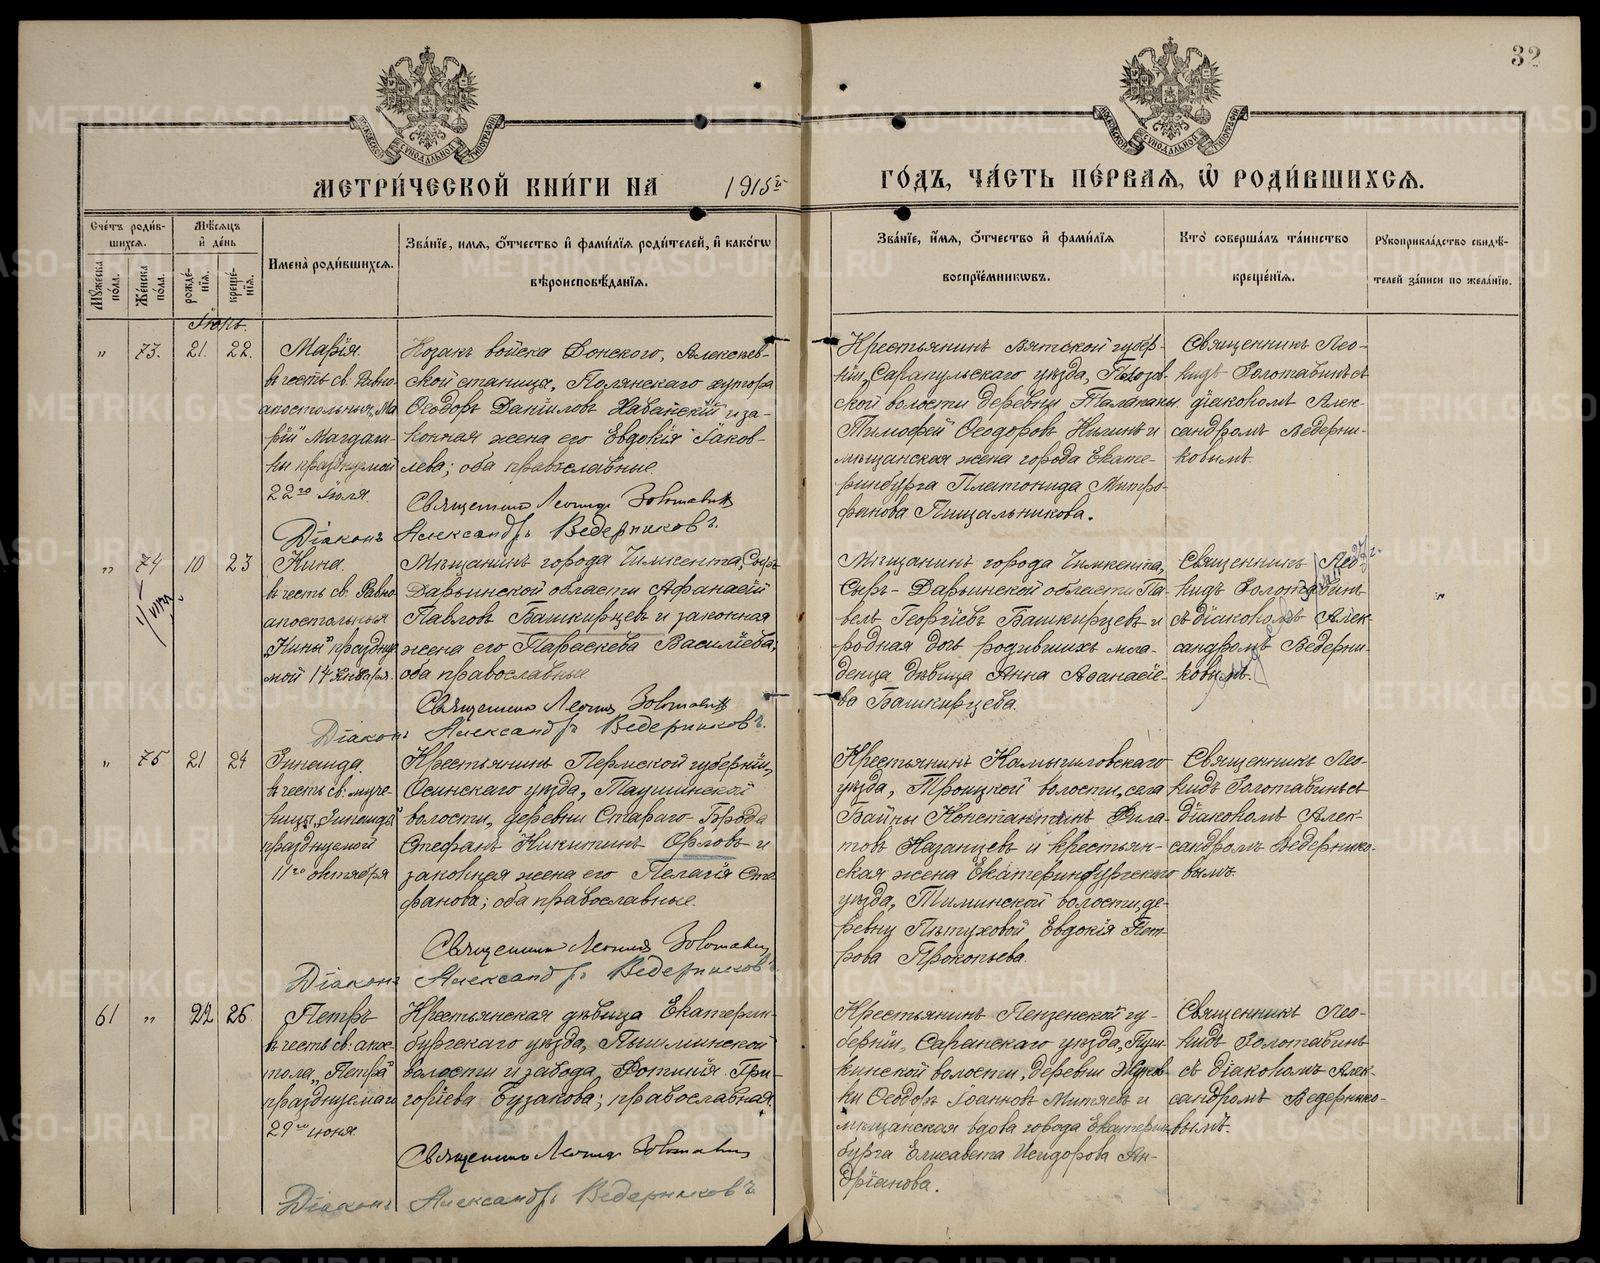 32
МЕТРИ́ЧЕСКОЙ КНИ́ГИ НА 1915й ГО́ДЪ, ЧА́СТЬ ПЕ́РВАЯ, Ѡ РОДИ́ВШИХСЯ.
Сче́тъ роди́вшихся.
Мѹжеска по́ла.
Же́нска по́ла.
Мѣ́сяцъ и де́нь
рожде́нїя.
креще́нїя.
Имена̀ роди́вшихся.
Зва́нїе, имя, о́тчество и фами́лїя роди́телей, и како́гѡ
вѣроисповѣ́данїя.
Зва́нїе, и́мя, о́тчество и фами́лїя
воспрїе́мникѡвъ.
Кто̀ соверша́лъ та́инство
креще́нїя.
Рѹкоприкла́дство свидѣ́-
телей за́писи по жела́нїю.
Іюль.
" 73. 21. 22.
Марія
въ честь св. Равно-
апостольныя „Ма-
ріи" Магдали-
ны празднуемой
22го іюля.
Козакъ войска Донского, Алексѣев-
ской станицы, Полянскаго хутора
Ѳеодоръ Даніиловъ Хаванскій и за-
конная жена его Евдокія Іаков-
лева; оба православные.
Священникъ Леонидъ Золотавинъ
Діаконъ Александръ Ведерниковъ.
Крестьянинъ Вятской губер-
ніи, Сарапульскаго уѣзда,
ской волости деревни Талапаны
Тимофей Ѳеодоровъ и
мѣщанская жена города Екате-
ринбурга Платонида Митро-
фанова Пищальникова.
Священникъ Лео-
нидъ Золотавинъ съ
діакономъ Алек-
сандромъ Ведерни-
ковымъ.
" 74 10 23
Нина.
въ честь св. Равно-
апостольныя
„Нины" праздну-
мой 14 Января.
Мѣщанинъ города Чимкента, Сыръ-
Дарьинской области Афанасій
Павловъ Башкирцевъ и законная
жена его Параскева Василіева;
оба православные
Священникъ Леонидъ Золотавинъ
Діаконъ Александръ Ведерниковъ.
Мѣщанинъ города Чимкента,
Сыръ-Дарьинской области Па-
велъ Георгіевъ Башкирцевъ и
родная дочь родившихъ мла-
денца дѣвица Анна Аѳанасіе-
ва Башкирцева.
Священникъ Лео-
нидъ Золотавинъ
съ діакономъ Алек-
сандромъ Ведерни-
ковымъ.
" 75 21 24
Зинаида.
въ честь св: муче-
ницы „Зинаиды"
празднуемой
11го октября
Крестьянинъ Пермской губерніи,
Осинскаго уѣзда, Таушинской
волости, деревни Стараго-Брода
Стефанъ Никитинъ Орловъ и
законная жена его Пелагія Сте-
фанова; оба православные.
Священникъ Леонидъ Золотавинъ
Діаконъ Александръ Ведерниковъ.
Крестьянинъ Камышловскаго
уѣзда, Троицкой волости, села
Байны Константинъ Фила-
товъ Казанцевъ и крестьян-
ская жена Екатеринбургскаго
уѣзда, Тиминской волости, де-
ревни Пѣтуховой Евдокія Пет-
рова Прокопьева.
Священникъ Лео-
нидъ Золотавинъ съ
діакономъ Алек-
сандромъ Ведернико-
вымъ.
61 " 22 25
Петръ
въ честь св: апос-
тола „Петра"
празднуемаго
29го іюня.
Крестьянская дѣвица Екатерин-
бургскаго уѣзда, Пышминской
волости и завода, Фотинія Гри-
горіева Бузакова; православная.
Священникъ Леонидъ Золотавинъ
Діаконъ Александръ Ведерниковъ
Крестьянинъ Пензенской гу-
берніи, Саранскаго уѣзда,
волости, деревни
Ѳеодоръ Іоанновъ Митяевъ и
мѣщанская вдова города Екатерин-
бурга Елисавета Исидорова Ан-
дріанова.
Священникъ Лео-
нидъ Золотавинъ
съ діакономъ Алек-
сандромъ Ведернико-
вымъ.
METRIKI.GASO-URAL.RU